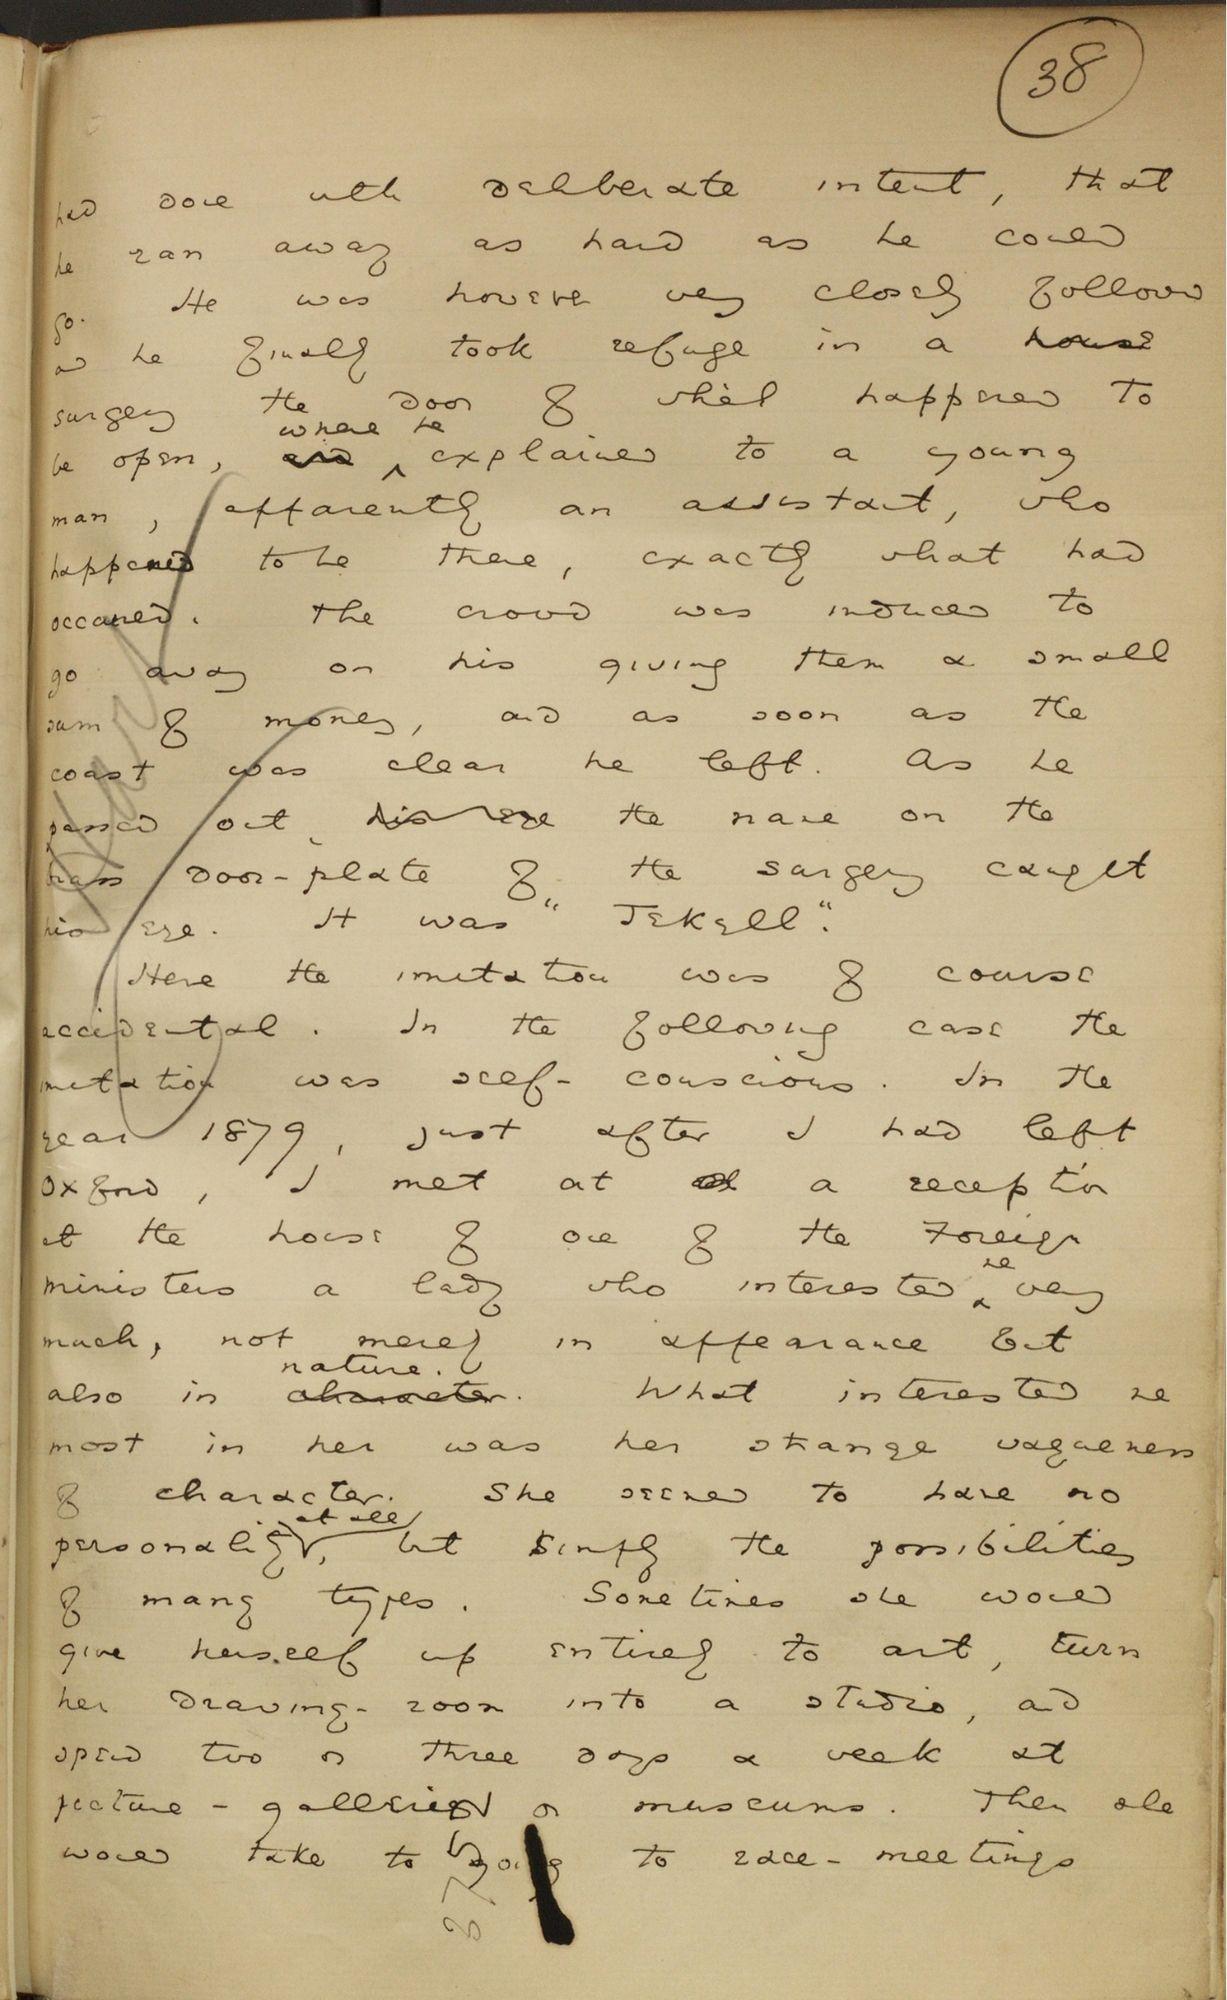 38
had done with deliberate intent, that
he ran away as hard as he could
go. He was however very closely followed
and he finally took refuge in a house
surgery the door of which happened to
where he
be open, and explained to a young
man, apparently an assistant, who
happened to be there, exactly what had
occurred. The crowd was induced to
go away on his giving them a small
sum of money, and as soon as the
coast was clear he left. As he
passed out his eye the name on the
brass door-plate of the surgery caught
his eye. It was "Jekyll".
Here the imitation was of course
accidental. In the following case the
imitation was self-conscious. In the
year 1879, just after I had left
Oxford, I met at a reception
at the house of one of the Foreign
me
ministers a lady who interested very
much, not merely in appearance but
nature.
also in character. What interested me
most in her was her strange vagueness
of character. She seemed to have no
at all
personality, but simply the possibilities
of many types. Sometimes she would
give herself up entirely to art, turn
her drawing-room into a studio, and
spend two or three days a week at
picture-galleries or museums. Then she
would take to going to race-meetings